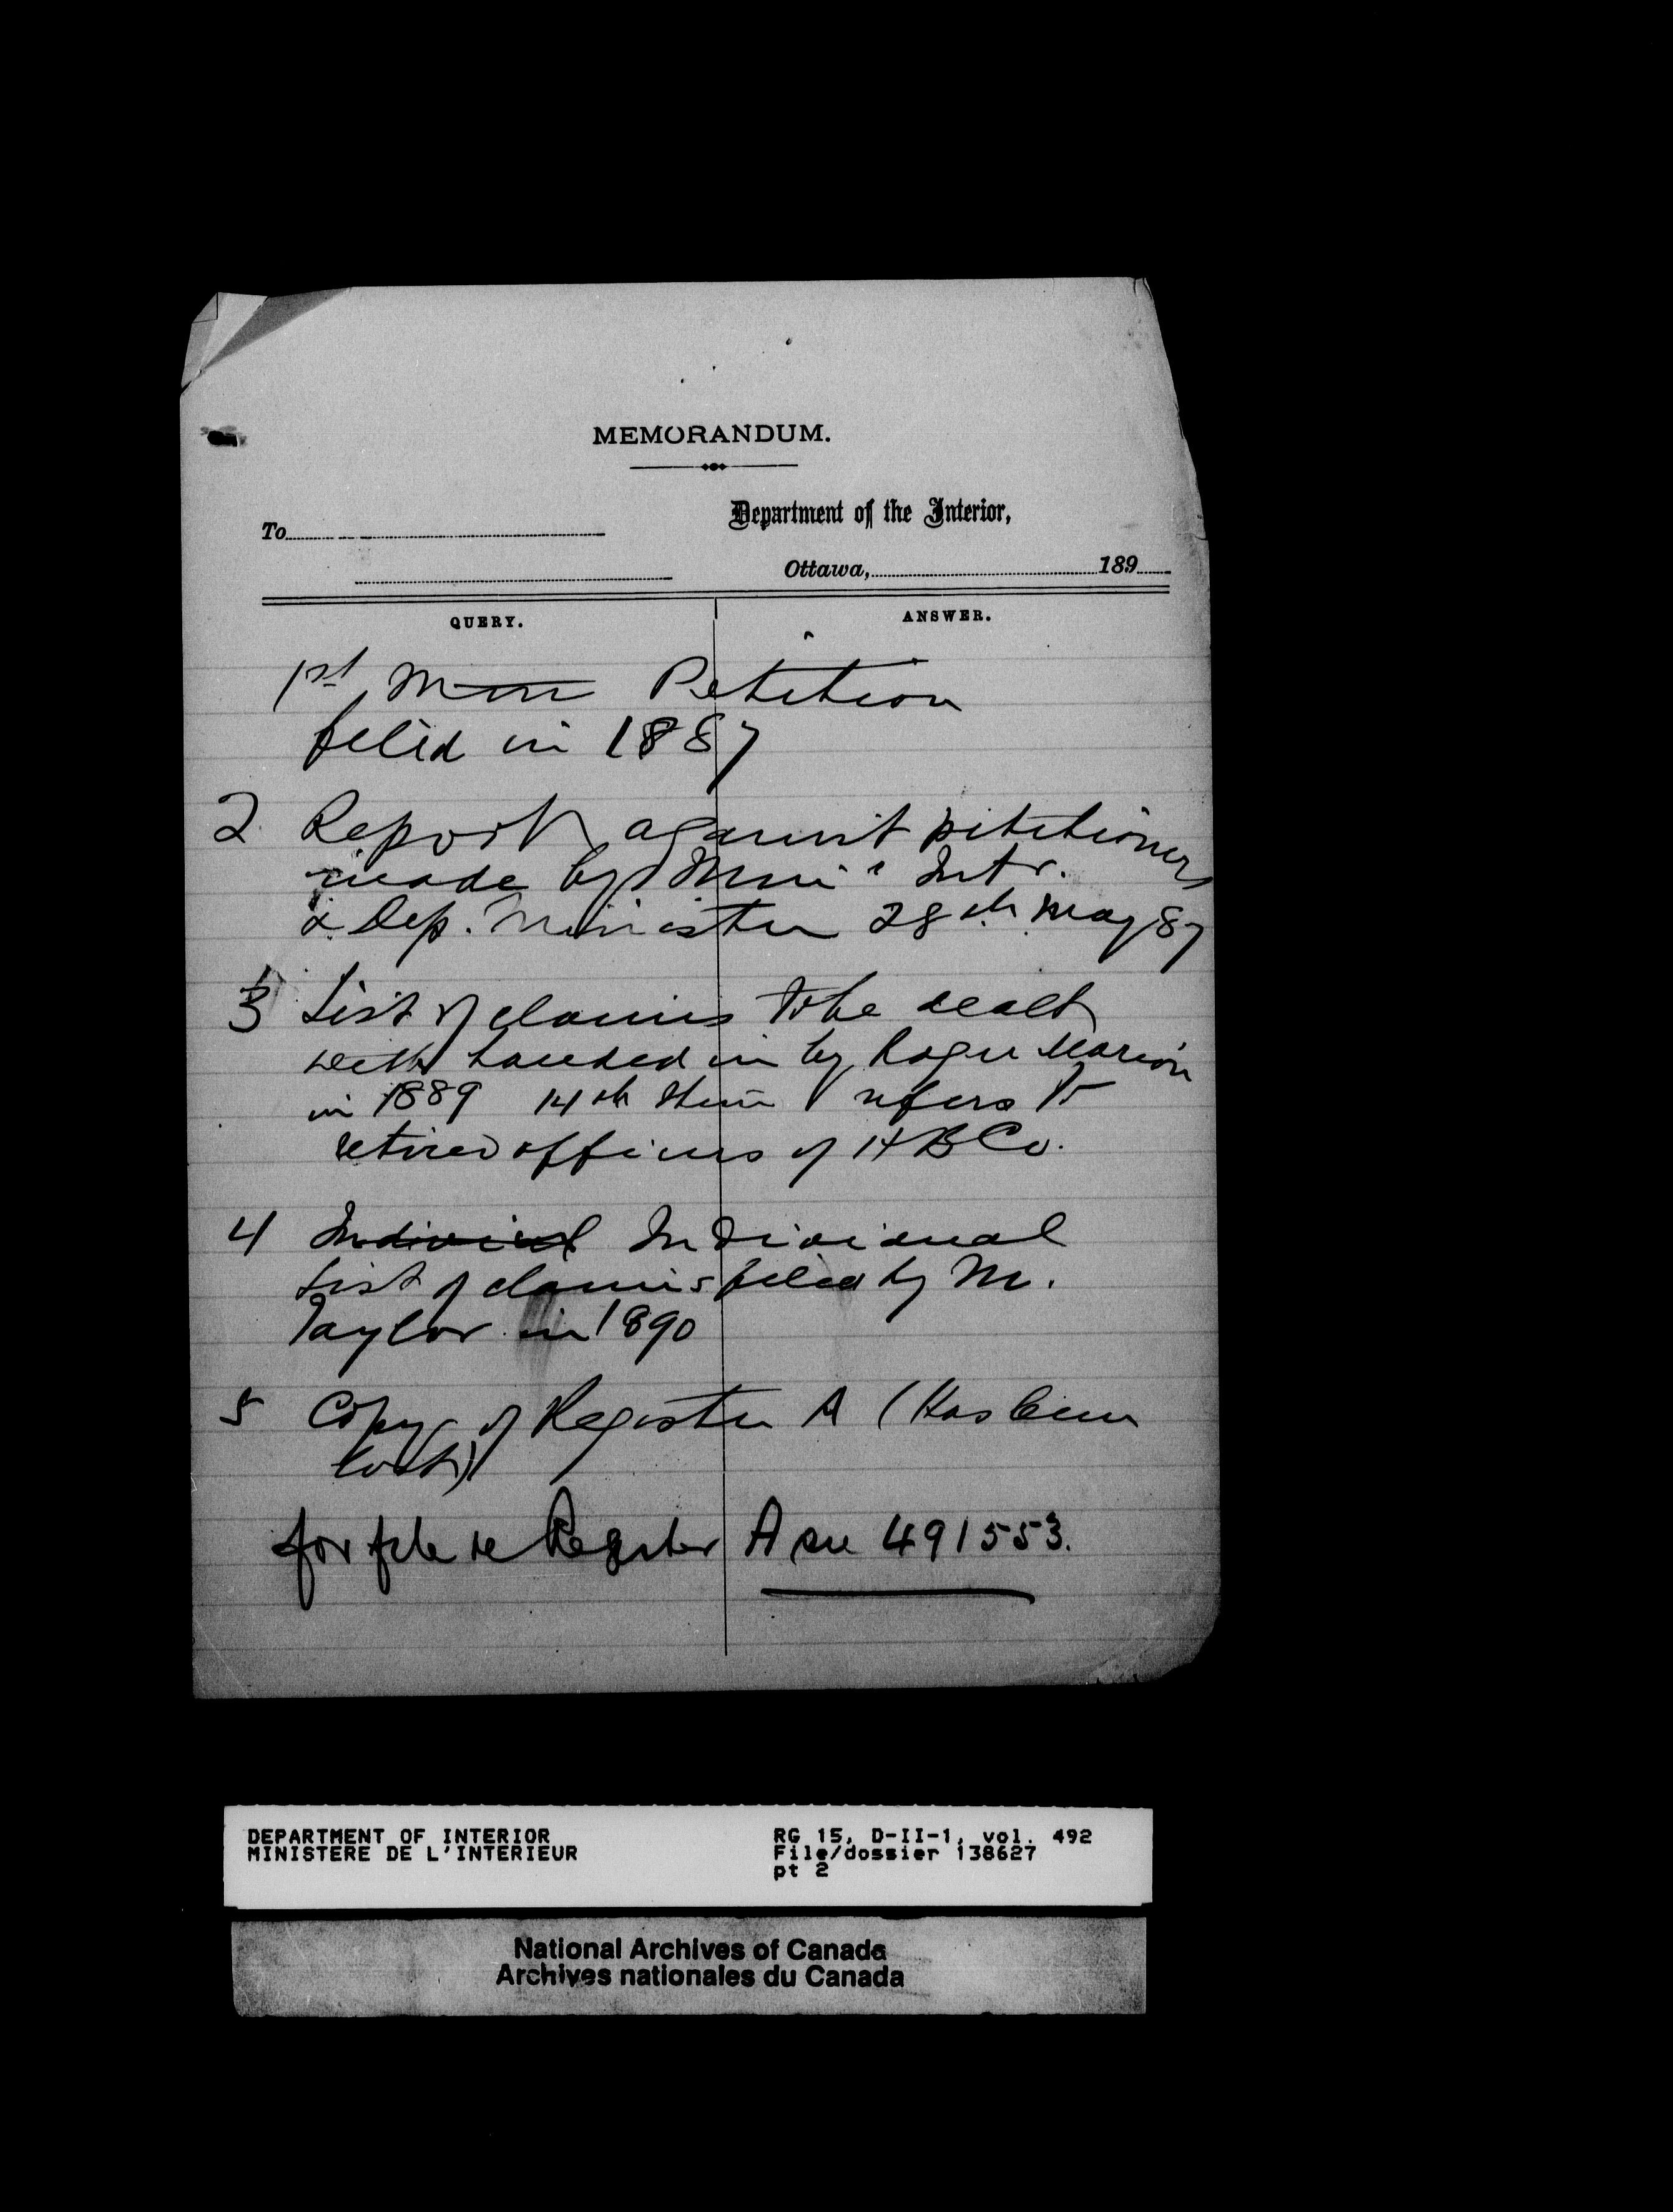 MEMORANDUM.
Department of the Interior,
To
Ottawa, 189
QUERY. ANSWER.
1st Petition
filed in 1887
2 Report against petitioners
made by Intr.
& Dep. Minister 28th May 87
3 List of claims to be dealt
with handed in by Roger Marion
in 1889 14th Item refers to
retired officers of HBCo.
4 Individual
List of claims filed by Mr.
Taylor in 1890
5 Copy of Register A (Has been
lost)
for file re Register A see 491553.
DEPARTMENT OF INTERIOR
MINISTERE DE L'INTERIEUR
RG 15, D-II-1, vol. 492
File/dossier 138627
pt 2
National Archives of Canada
Archives nationales du Canada